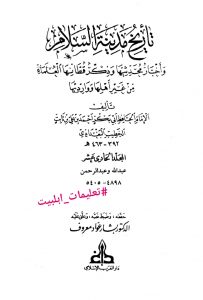 تاريخ مدينة السلام
وأخبار محدثيها وذكر قطانها العلماء
من غير أهلها ووارديها
تأليف
الإمام الحافظ أبي بكر أحمد بن علي بن ثابت
الخطيب البغدادي
٣٩٢ - ٤٦٣ هـ
المجلد الحادي عشر
عبدالله وعبدالرحمن
٤٨٩٨ - ٥٤٠٥
#تعليمات_ابلبيت
حققه، وضبط نصه، وعلق عليه
الدكتور بشار عواد معروف
دار الغرب الإسلامي